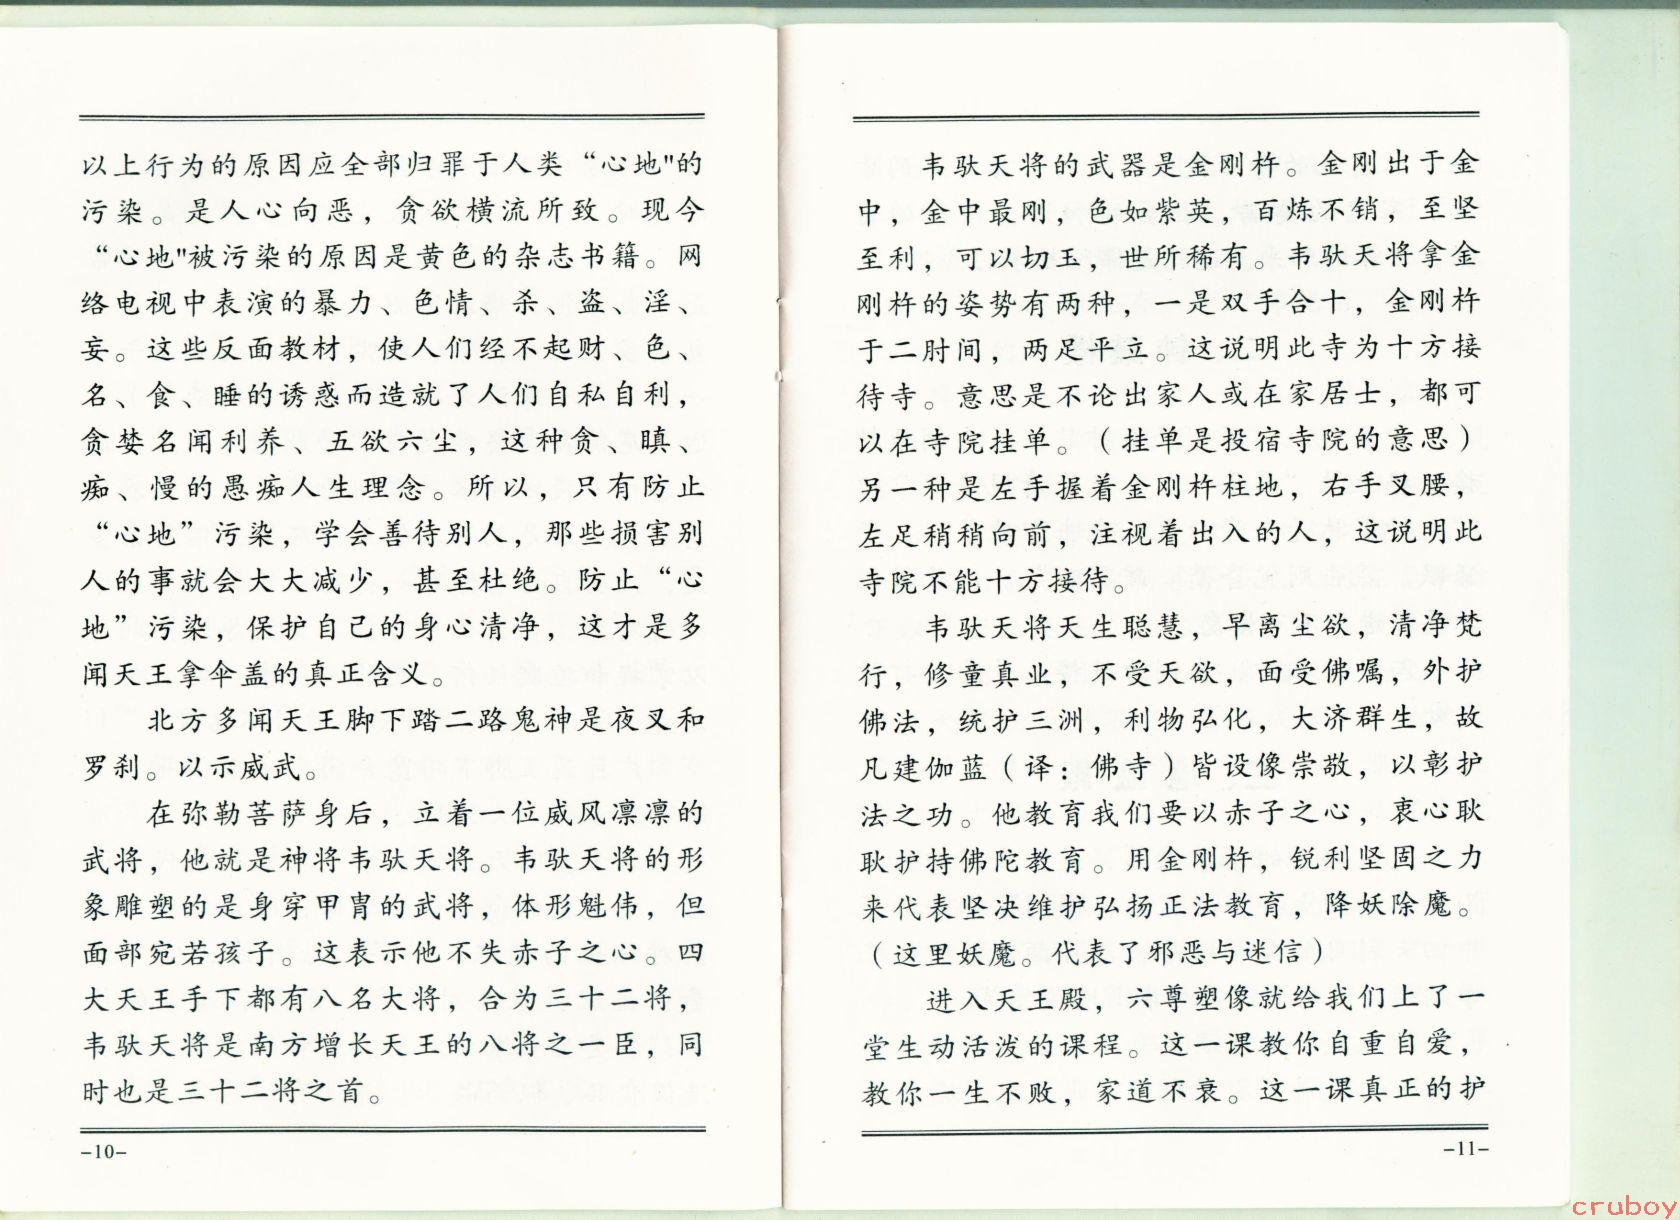 以上行为的原因应全部归罪于人类“心地"的
污染。是人心向恶，贪欲横流所致。现今
“心地"被污染的原因是黄色的杂志书籍。网
络电视中表演的暴力、色情、杀、盗、淫、
妄。这些反面教材，使人们经不起财、色、
名、食、睡的诱惑而造就了人们自私自利，
贪婪名闻利养、五欲六尘，这种贪、瞋、
痴、慢的愚痴人生理念。所以，只有防止
“心地”污染，学会善待别人，那些损害别
人的事就会大大减少，甚至杜绝。防止“心
地”污染，保护自己的身心清净，这才是多
闻天王拿伞盖的真正含义。
北方多闻天王脚下踏二路鬼神是夜叉和
罗刹。以示威武。
在弥勒菩萨身后，立着一位威风凛凛的
武将，他就是神将韦驮天将。韦驮天将的形
象雕塑的是身穿甲胄的武将，体形魁伟，但
面部宛若孩子。这表示他不失赤子之心。四
大天王手下都有八名大将，合为三十二将，
韦驮天将是南方增长天王的八将之一臣，同
时也是三十二将之首。
-10-
韦驮天将的武器是金刚杵。金刚出于金
中，金中最刚，色如紫英，百炼不销，至坚
至利，可以切玉，世所稀有。韦驮天将拿金
刚杵的姿势有两种，一是双手合十，金刚杵
于二肘间，两足平立。这说明此寺为十方接
待寺。意思是不论出家人或在家居士，都可
以在寺院挂单。（挂单是投宿寺院的意思）
另一种是左手握着金刚杵柱地，右手叉腰，
左足稍稍向前，注视着出入的人，这说明此
寺院不能十方接待。
韦驮天将天生聪慧，早离尘欲，清净梵
行，修童真业，不受天欲，面受佛嘱，外护
佛法，统护三洲，利物弘化，大济群生，故
凡建伽蓝（译：佛寺）皆设像崇敬，以彰护
法之功。他教育我们要以赤子之心，衷心耿
耿护持佛陀教育。用金刚杵，锐利坚固之力
来代表坚决维护弘扬正法教育，降妖除魔。
（这里妖魔。代表了邪恶与迷信）
进入天王殿，六尊塑像就给我们上了一
堂生动活泼的课程。这一课教你自重自爱，
教你一生不败，家道不衰。这一课真正的护
-11-
cruboy